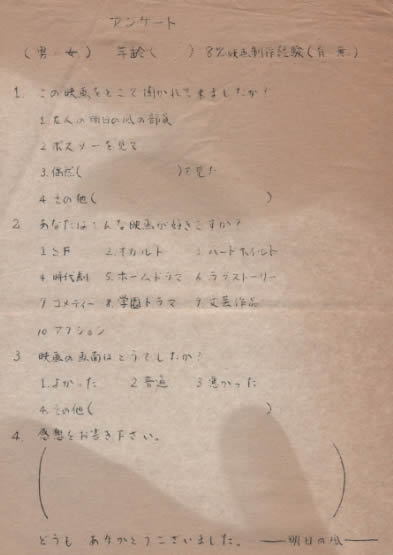 アンケート
(男・女) 年齢( ) 8%映画制作経験(有 無)
1. この映画をどこで聞かれて来ましたか?
1.友人の明日の風の部員
2 ポスターを見て
3.偶然( )で見た
4 その他( )
2. あなたはどんな映画が好きですか?
1.SF 2.オカルト 3.ハードボイルド
4 時代劇 5.ホームドラマ 6 ラブストーリー
7 コメディー 8.学園ドラマ 9.文芸作品
10 アクション
3 映画の画面はどうでしたか?
1.よかった 2 普通 3 悪かった
4.その他( )
4. 感想をお書き下さい。
( )
どうも ありがとうございました。 ——明日の風——